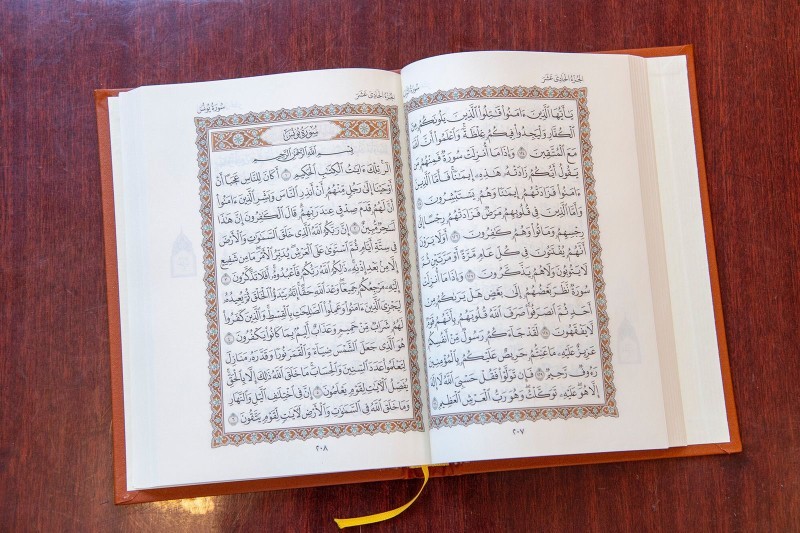 الجزء الحادي عشر
سورة
يَٰٓأَيُّهَا ٱلَّذِينَ ءَامَنُواْ قَٰتِلُواْ ٱلَّذِينَ يَلُونَكُم مِّنَ
ٱلْكُفَّارِ وَلْيَجِدُواْ فِيكُمْ غِلْظَةً وَٱعْلَمُوٓاْ أَنَّ ٱللَّهَ
مَعَ ٱلْمُتَّقِينَ ١٢٣ وَإِذَا مَآ أُنزِلَتْ سُورَةٌ فَمِنْهُم مَّن
يَقُولُ أَيُّكُمْ زَادَتْهُ هَٰذِهِۦٓ إِيمَٰنًا فَأَمَّا ٱلَّذِينَ
ءَامَنُواْ فَزَادَتْهُمْ إِيمَٰنًا وَهُمْ يَسْتَبْشِرُونَ ١٢٤
وَأَمَّا ٱلَّذِينَ فِي قُلُوبِهِم مَّرَضٌ فَزَادَتْهُمْ رِجْسًا إِلَىٰ
رِجْسِهِمْ وَمَاتُواْ وَهُمْ كَٰفِرُونَ ١٢٥ أَوَلَا يَرَوْنَ
أَنَّهُمْ يُفْتَنُونَ فِي كُلِّ عَامٍ مَّرَّةً أَوْ مَرَّتَيْنِ ثُمَّ
لَا يَتُوبُونَ وَلَا هُمْ يَذَّكَّرُونَ ١٢٦ وَإِذَا مَآ أُنزِلَتْ
سُورَةٌ نَّظَرَ بَعْضُهُمْ إِلَىٰ بَعْضٍ هَلْ يَرَىٰكُم مِّنْ
أَحَدٍ ثُمَّ ٱنصَرَفُواْ صَرَفَ ٱللَّهُ قُلُوبَهُم بِأَنَّهُمْ قَوْمٌ
لَّا يَفْقَهُونَ ١٢٧ لَقَدْ جَآءَكُمْ رَسُولٌ مِّنْ أَنفُسِكُمْ
عَزِيزٌ عَلَيْهِ مَا عَنِتُّمْ حَرِيصٌ عَلَيْكُم بِٱلْمُؤْمِنِينَ
رَءُوفٌ رَّحِيمٌ ١٢٨ فَإِن تَوَلَّوْاْ فَقُلْ حَسْبِيَ ٱللَّهُ لَآ إِلَٰهَ
إِلَّا هُوَ عَلَيْهِ تَوَكَّلْتُ وَهُوَ رَبُّ ٱلْعَرْشِ ٱلْعَظِيمِ ١٢٩
٢٠٧
الجزء الحادي عشر
سورة يونس
سورة يونس
بِسْمِ ٱللَّهِ ٱلرَّحْمَٰنِ ٱلرَّحِيمِ
الٓر تِلْكَ ءَايَٰتُ ٱلْكِتَٰبِ ٱلْحَكِيمِ ١ أَكَانَ لِلنَّاسِ عَجَبًا أَنْ
أَوْحَيْنَآ إِلَىٰ رَجُلٍ مِّنْهُمْ أَنْ أَنذِرِ ٱلنَّاسَ وَبَشِّرِ ٱلَّذِينَ ءَامَنُوٓاْ
أَنَّ لَهُمْ قَدَمَ صِدْقٍ عِندَ رَبِّهِمْ قَالَ ٱلْكَٰفِرُونَ إِنَّ هَٰذَا
لَسَٰحِرٌ مُّبِينٌ ٢ إِنَّ رَبَّكُمُ ٱللَّهُ ٱلَّذِي خَلَقَ ٱلسَّمَٰوَٰتِ وَٱلْأَرْضَ
فِي سِتَّةِ أَيَّامٍ ثُمَّ ٱسْتَوَىٰ عَلَى ٱلْعَرْشِ يُدَبِّرُ ٱلْأَمْرَ مَا مِن شَفِيعٍ
إِلَّا مِنۢ بَعْدِ إِذْنِهِۦ ذَٰلِكُمُ ٱللَّهُ رَبُّكُمْ فَٱعْبُدُوهُ أَفَلَا تَذَكَّرُونَ ٣
إِلَيْهِ مَرْجِعُكُمْ جَمِيعًا وَعْدَ ٱللَّهِ حَقًّا إِنَّهُۥ يَبْدَؤُاْ ٱلْخَلْقَ ثُمَّ يُعِيدُهُۥ
لِيَجْزِيَ ٱلَّذِينَ ءَامَنُواْ وَعَمِلُواْ ٱلصَّٰلِحَٰتِ بِٱلْقِسْطِ وَٱلَّذِينَ كَفَرُواْ
لَهُمْ شَرَابٌ مِّنْ حَمِيمٍ وَعَذَابٌ أَلِيمٌۢ بِمَا كَانُواْ يَكْفُرُونَ ٤
هُوَ ٱلَّذِي جَعَلَ ٱلشَّمْسَ ضِيَآءً وَٱلْقَمَرَ نُورًا وَقَدَّرَهُۥ مَنَازِلَ
لِتَعْلَمُواْ عَدَدَ ٱلسِّنِينَ وَٱلْحِسَابَ مَا خَلَقَ ٱللَّهُ ذَٰلِكَ إِلَّا بِٱلْحَقِّ
يُفَصِّلُ ٱلْءَايَٰتِ لِقَوْمٍ يَعْلَمُونَ ٥ إِنَّ فِي ٱخْتِلَٰفِ ٱلَّيْلِ وَٱلنَّهَارِ
وَمَا خَلَقَ ٱللَّهُ فِي ٱلسَّمَٰوَٰتِ وَٱلْأَرْضِ لَءَايَٰتٍ لِّقَوْمٍ يَتَّقُونَ ٦
٢٠٨